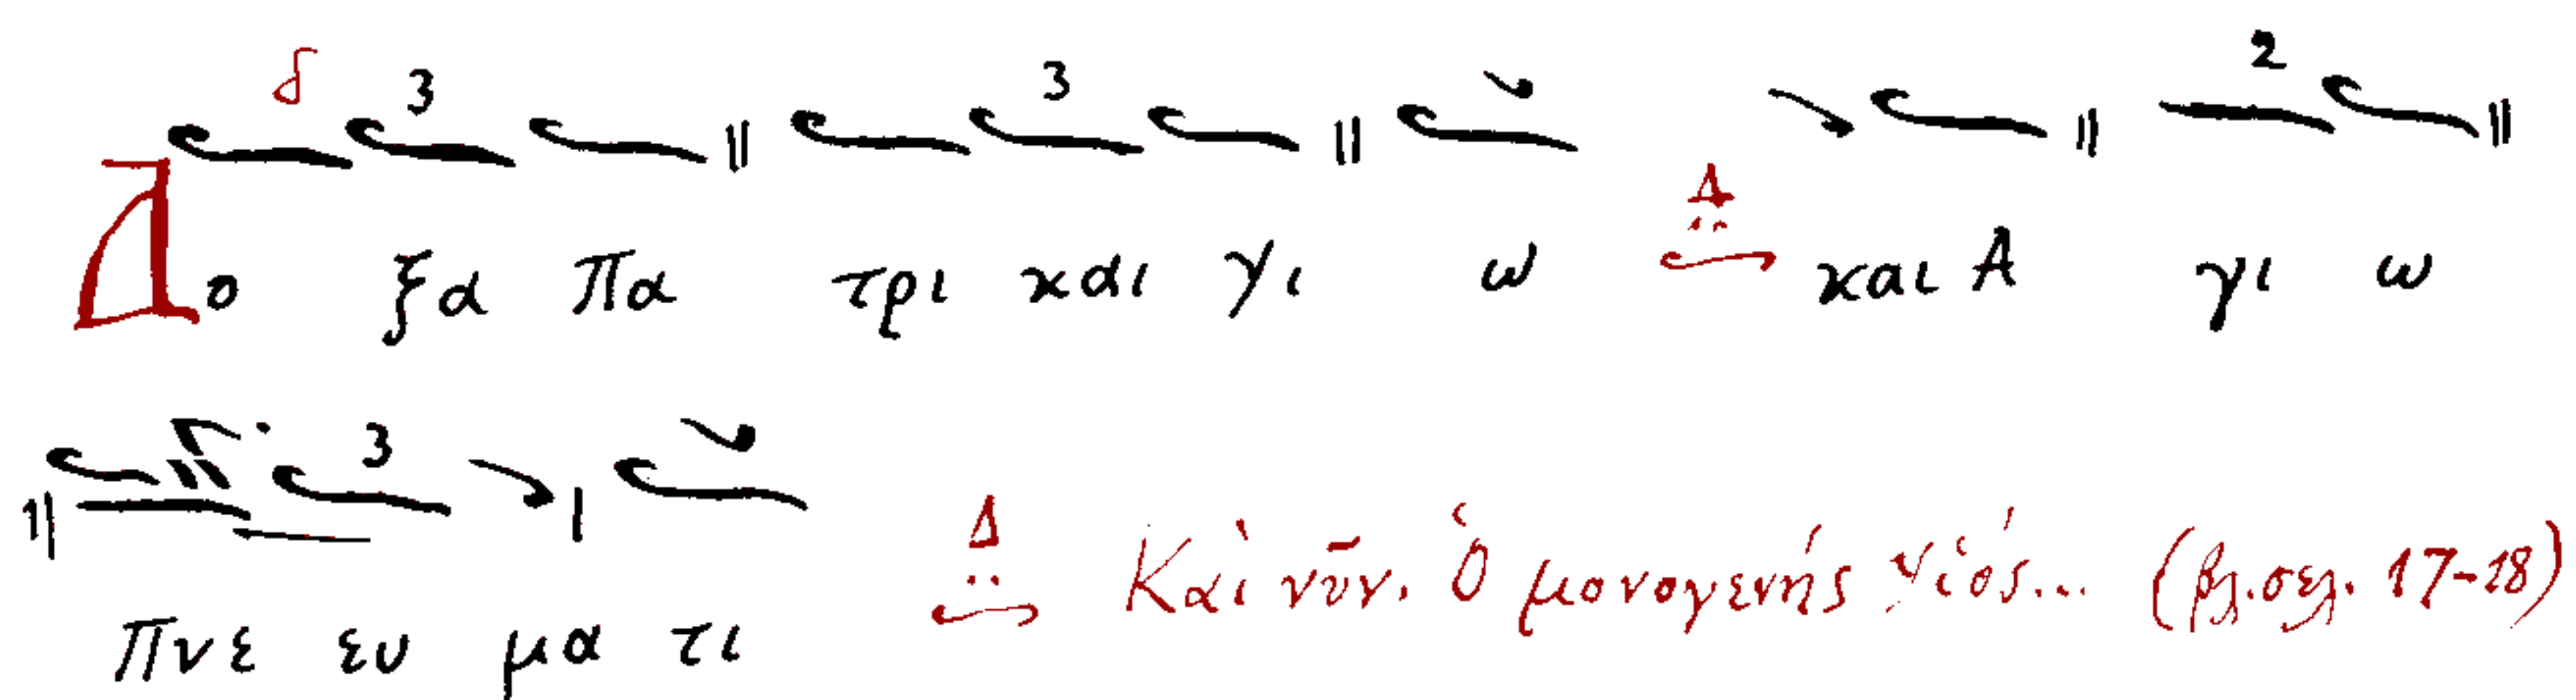 δ 3 3 2
Δο ξα Πα τρι και Υι ω Δ και Α γι ω
3
Πνε ευ μα τι Δ Καὶ νῦν. Ὁ μονογενής Υἱός... (βλ. σελ. 17-18)